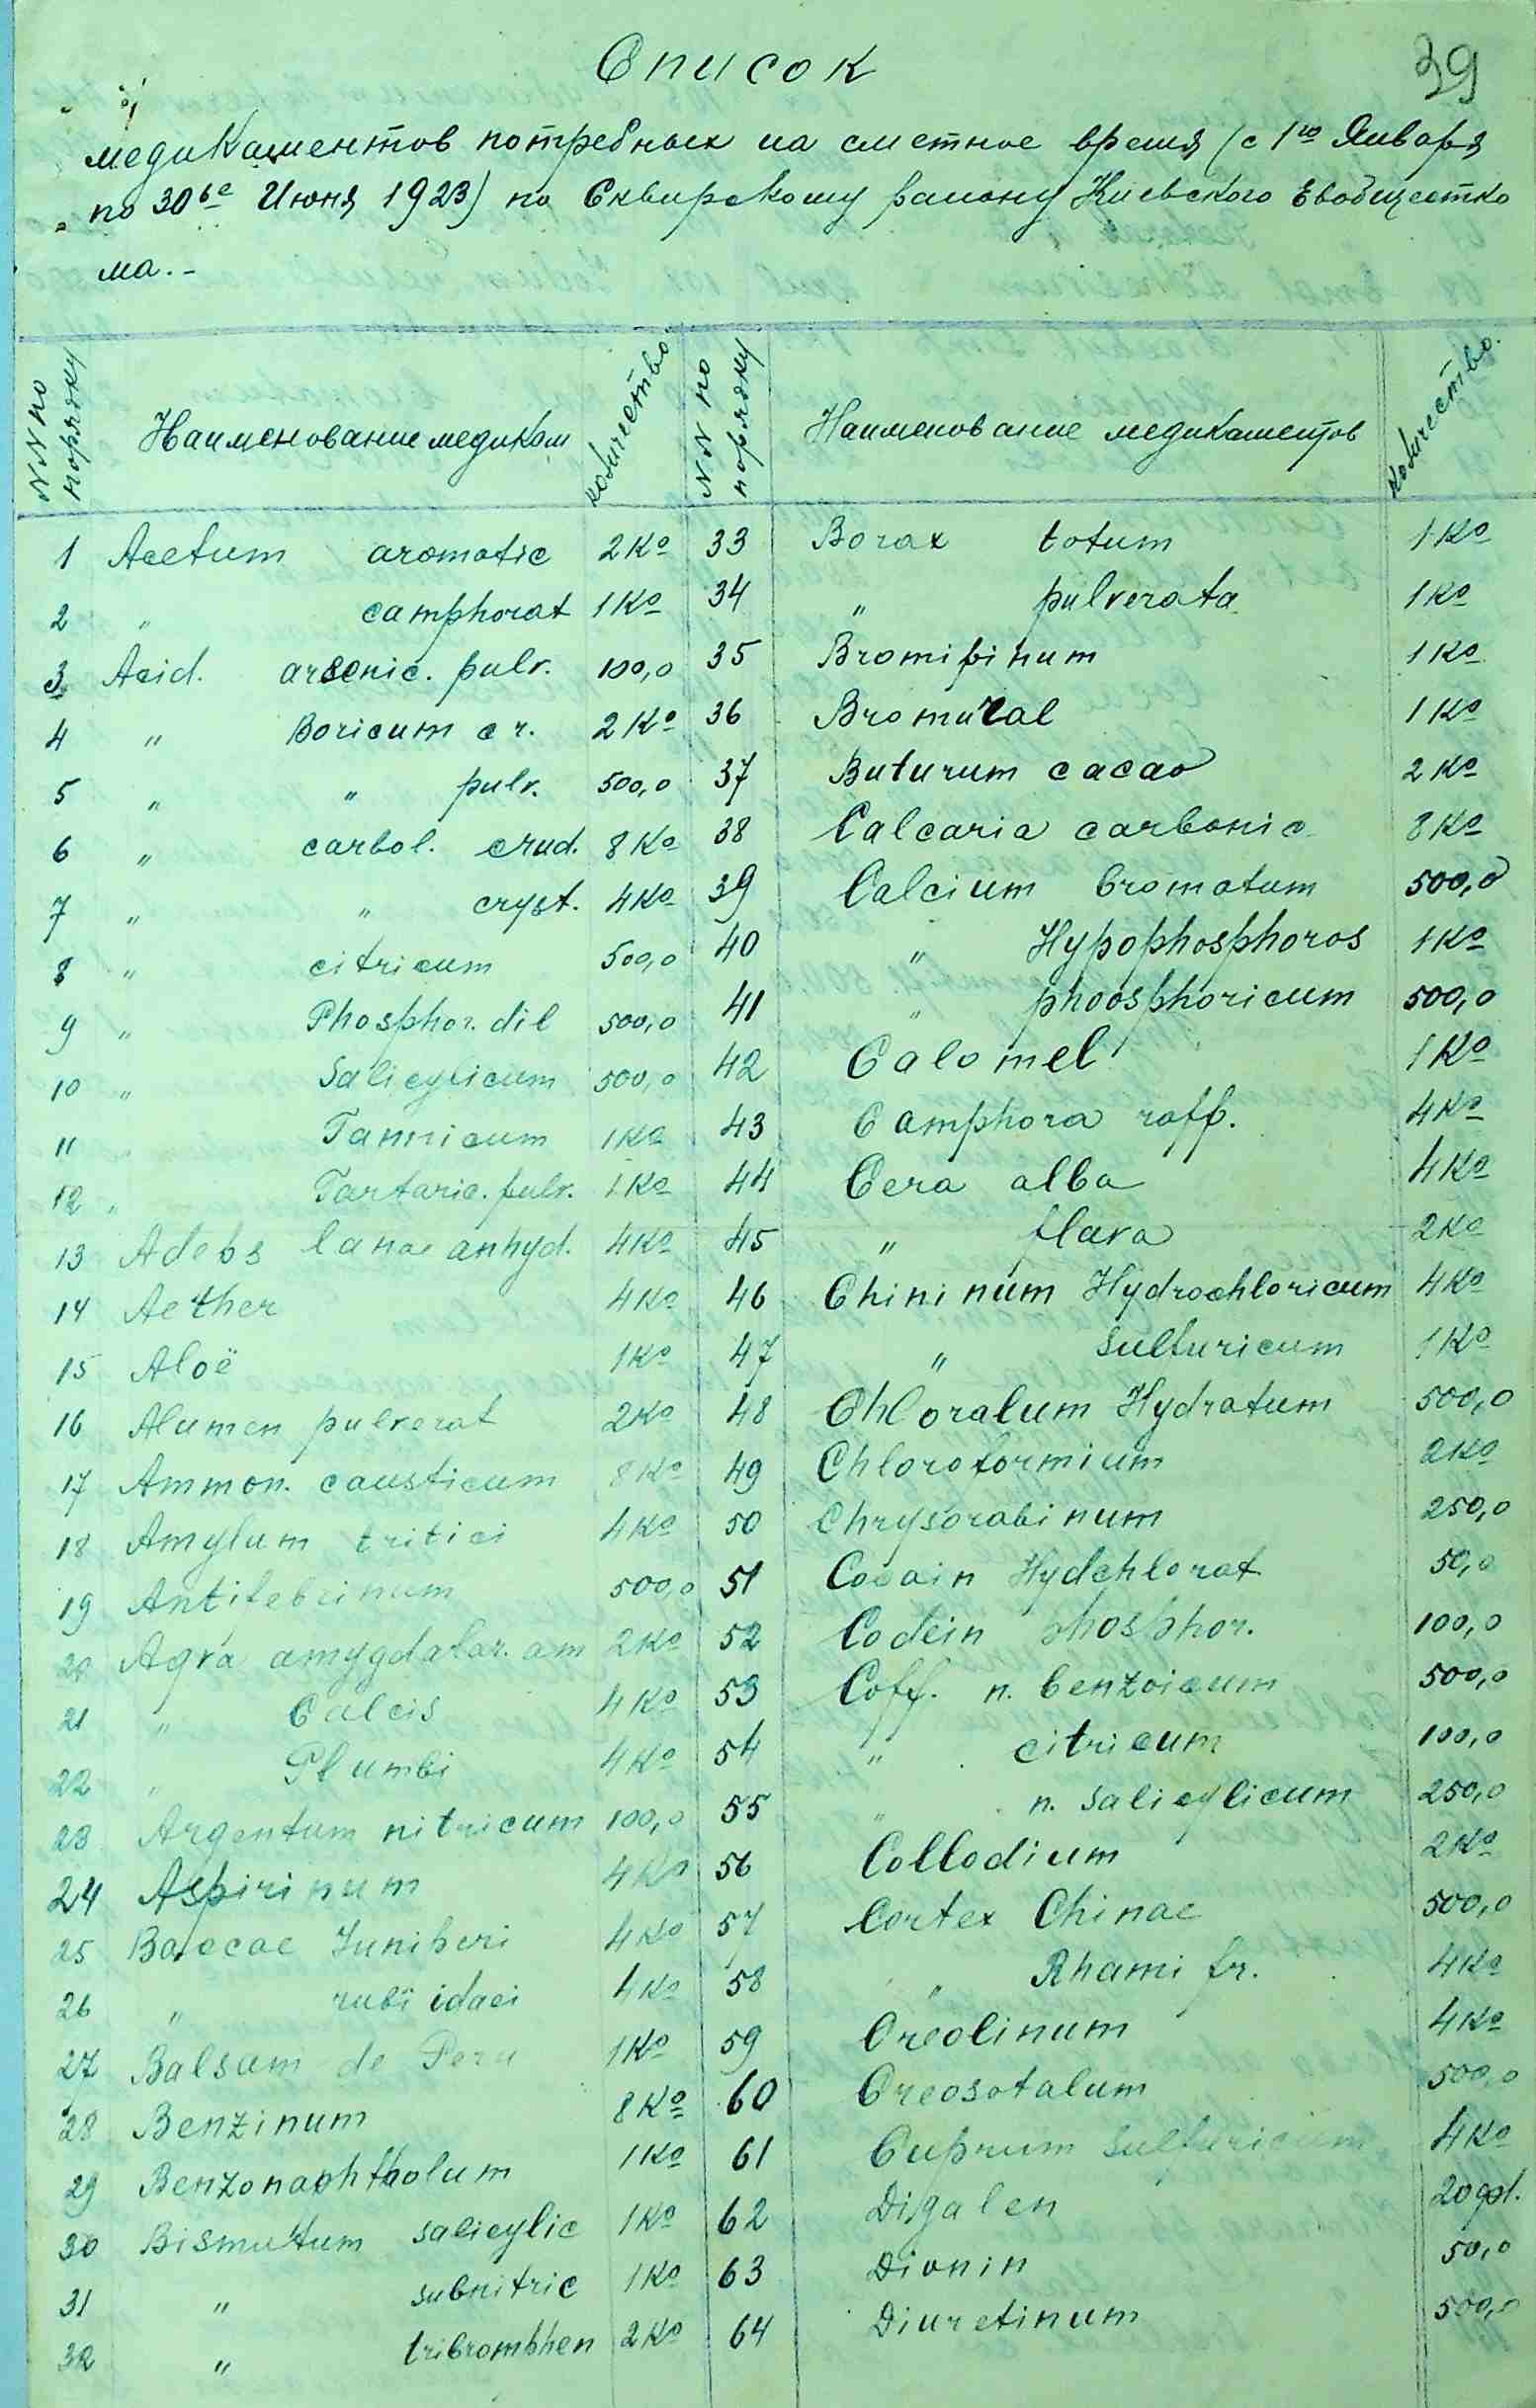 Список
39
медикаментов потребных на сметное время (с 1го Января
по 30е Июня 1923) по Сквирскому району Киевского Евобщестко
ма.-
NN по порядку Наименование медикам количество NN по порядку Наименование медикаментов количество.
1 Acetum aromatic 2 Ko 33 Borax totum 1 Ko
2 " camphorat 1 Ko 34 " pulverata 1 Ko
3 Acid. arsenic. pulv. 100,0 35 Bromipinum 1 Ko
4 " Boricum cr. 2 Ko 36 Bromural 1 Ko
5 " " pulv. 500,0 37 Buturum cacao 2 Ko
6 " carbol. crud. 8 Ko 38 Calcaria carbonic 8 Ko
7 " " cryst. 4 Ko 39 Calcium bromatum 500,0
8 " citricum 500,0 40 " Hypophosphoros 1 Ko
9 " Phosphor. dil 500,0 41 " phoosphoricum 500,0
10 " Salicylicum 500,0 42 Calomel 1 Ko
11 Tannicum 1 Ko 43 Camphora raff. 4 Ko
12 " Tartaric. pulv. 1 Ko 44 Cera alba 4 Ko
13 Adebs lanae anhyd. 4 Ko 45 " flava 2 Ko
14 Aether 4 Ko 46 Chininum Hydrochloricum 4 Ko
15 Aloë 1 Ko 47 " sulfuricum 1 Ko
16 Alumen pulverat 2 Ko 48 Chloralum Hydratum 500,0
17 Ammon. causticum 8 Ko 49 Chloroformium 2 Ko
18 Amylum tritici 4 Ko 50 Chrysorabinum 250,0
19 Antifebrinum 500,0 51 Cocain Hydchlorat 50,0
20 Aqva amygdalar. am 2 Ko 52 Codein phosphor. 100,0
21 " Calcis 4 Ko 53 Coff. n. benzoicum 500,0
22 " Plumbi 4 Ko 54 " citricum 100,0
23 Argentum nitricum 100,0 55 " n. salicylicum 250,0
24 Aspirinum 4 Ko 56 Collodium 2 Ko
25 Baccae Juniperi 4 Ko 57 Cortex Chinae 500,0
26 " rubi idaei 4 Ko 58 " Rhamni fr. 4 Ko
27 Balsam de Peru 1 Ko 59 Creolinum 4 Ko
28 Benzinum 8 Ko 60 Creosotalum 500,0
29 Benzonaphtholum 1 Ko 61 Cuprum sulfuricum 4 Ko
30 Bismuthum salicylic 1 Ko 62 Digalen 20
31 " subnitric 1 Ko 63 Dionin 50,0
32 " tribromphen 2 Ko 64 Diuretinum 500,0